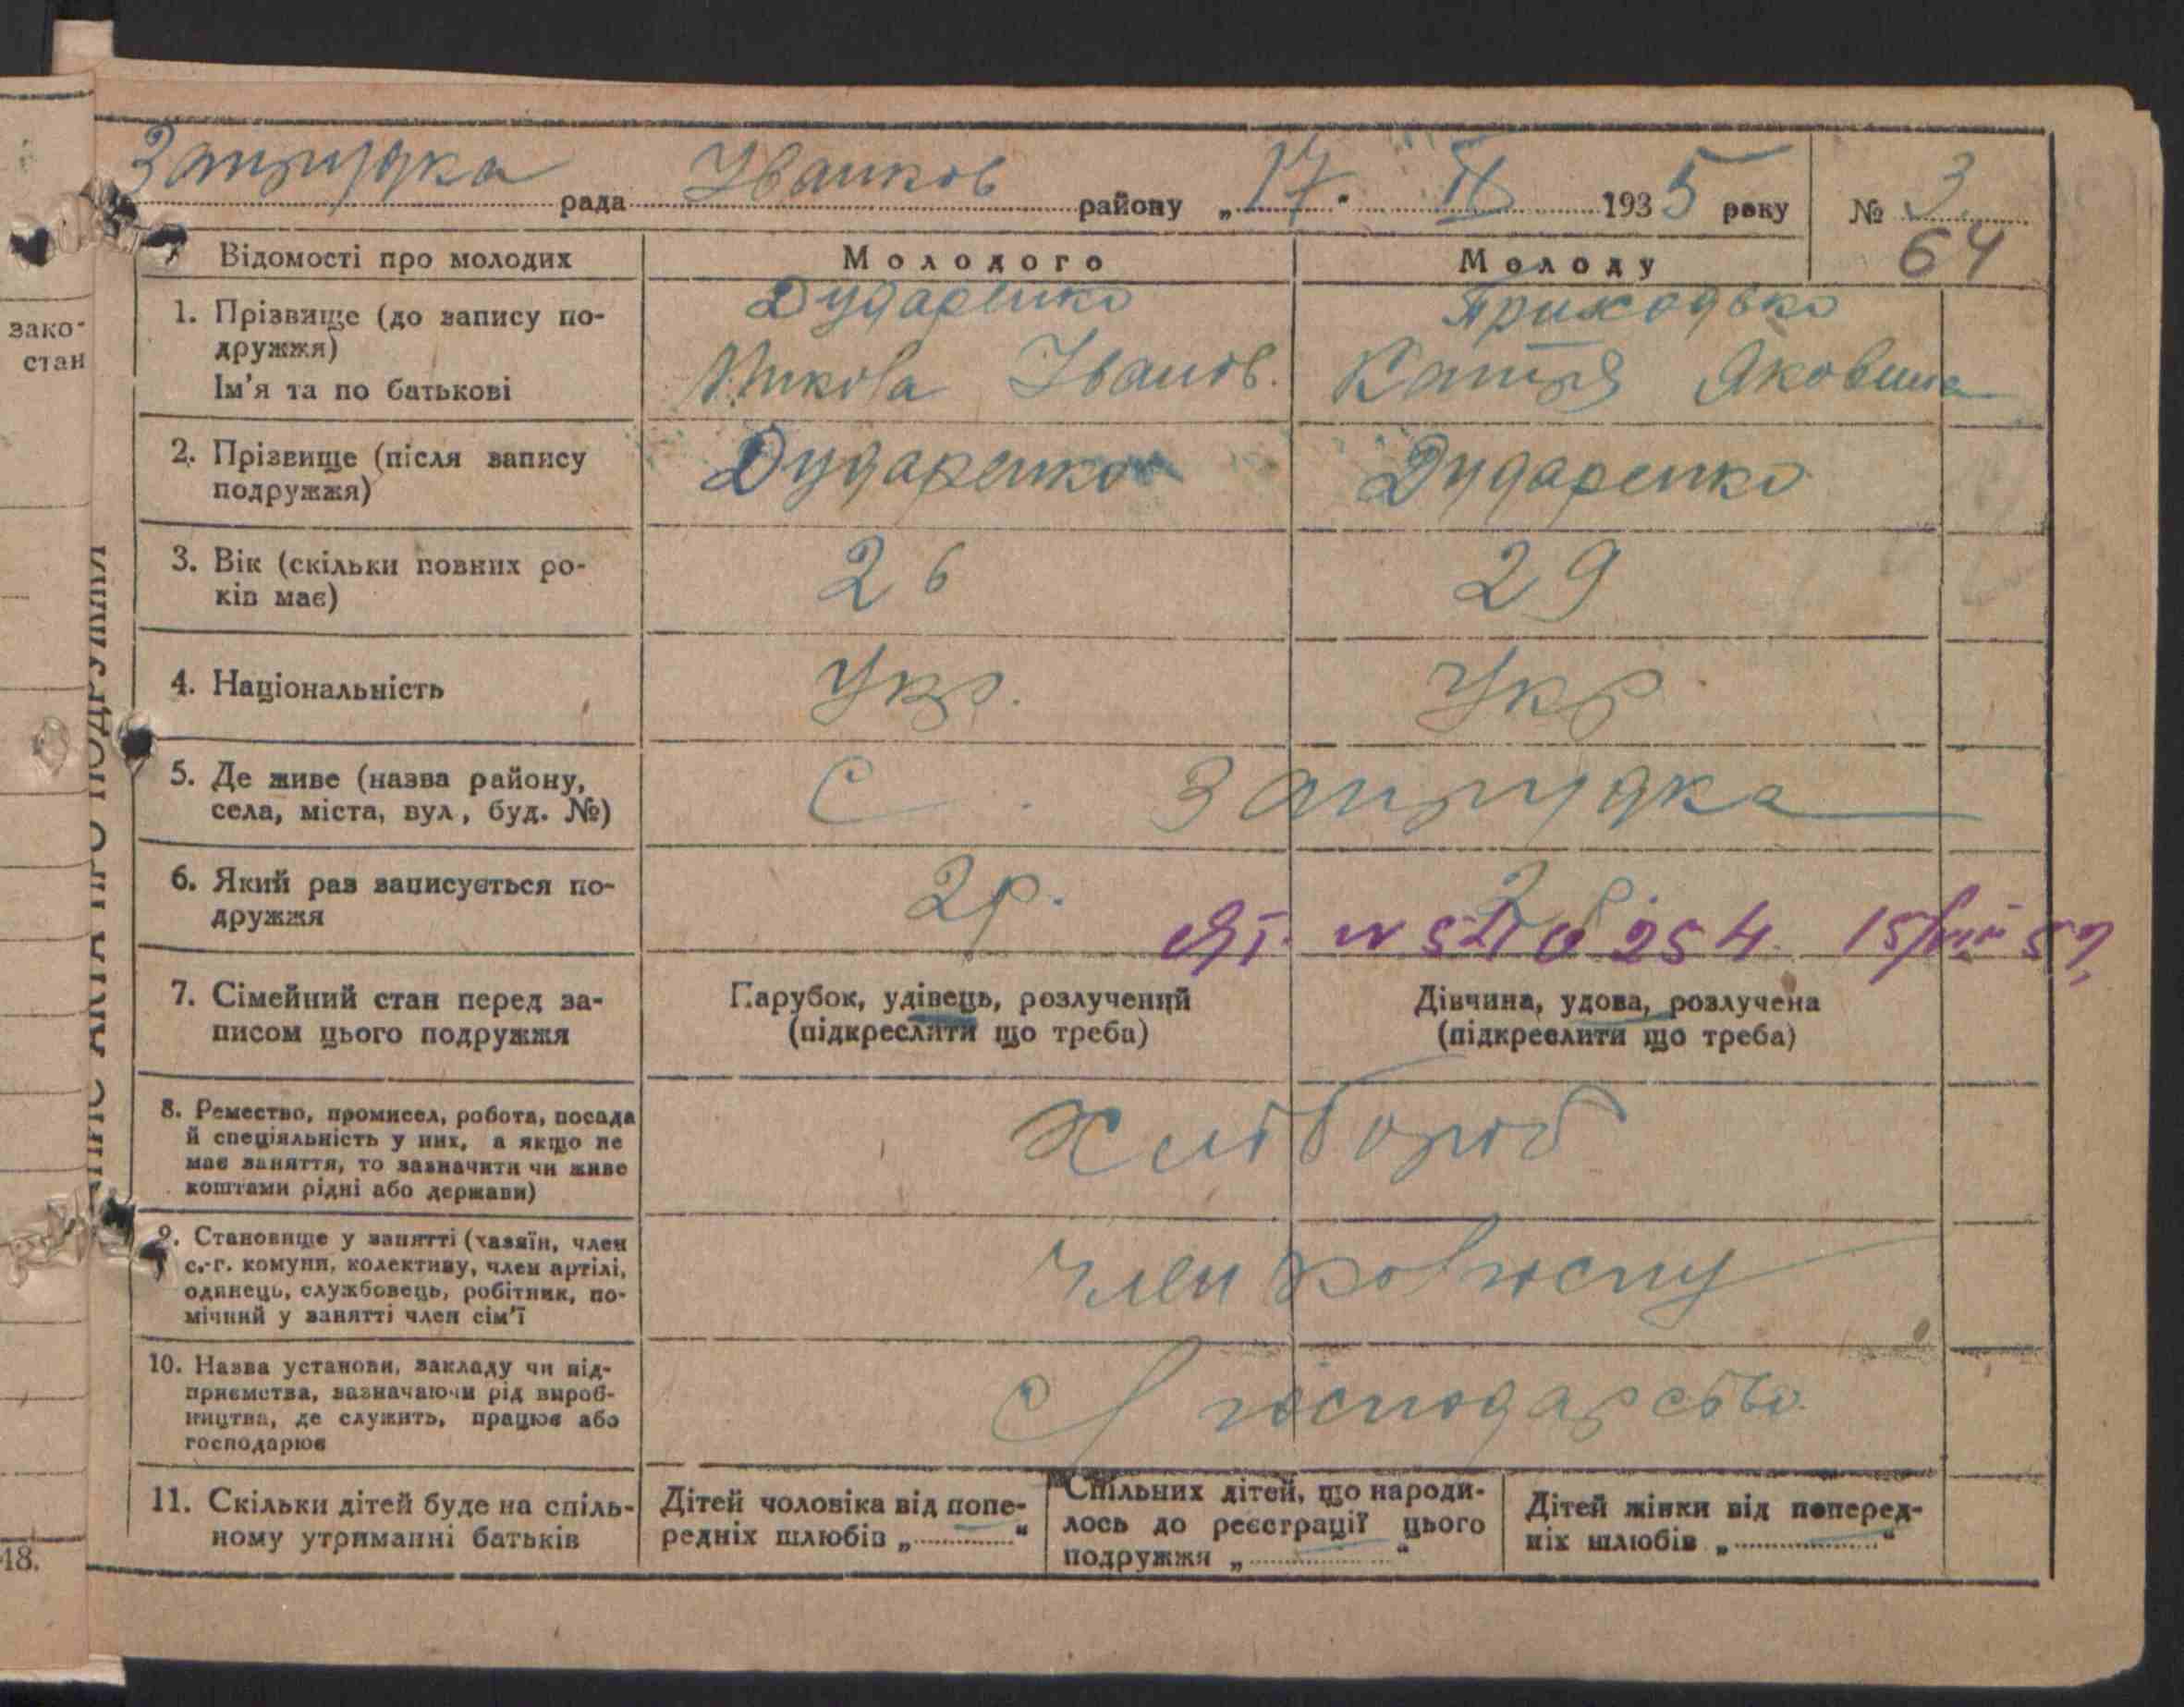 Запрудка рада Іванков району „17" ІІ 1935 року № 3
64
Відомості про молодих Молодого Молоду
1. Прізвище (до запису по-
дружжя)
Ім'я та по батькові
Дударенко
Микола Іванов.
Приходько
Катря Яковина
2. Прізвище (після запису
подружжя)
Дударенко Дударенко
3. Вік (скільки повних ро-
ків має)
26 29
4. Національність Укр. Укр
5. Де живе (назва району,
села, міста, вул, буд. №)
С. Запрудка
6. Який раз записується по-
дружжя
2р. 2р.
254 15/VIII 57
7. Сімейний стан перед за-
писом цього подружжя
Парубок, удівець, розлучений
(підкреслити що треба)
Дівчина, удова, розлучена
(підкреслити що треба)
8. Ремество, промисел, робота, посада
й спеціяльність у них, а якщо не
має заняття, то зазначити чи живе
коштами рідні або держави)
Хлібороб
9. Становище у занятті (хазяїн, член
с.-г. комуни, колективу, член артілі,
одинець, службовець, робітник, по-
мічний у занятті член сім'ї
член колгоспу
10. Назва установи, закладу чи під-
приємства, зазначаючи рід вироб-
ництва, де служить, працює або
господарює
С/господарство
11. Скільки дітей буде на спіль-
ному утриманні батьків
Дітей чоловіка від попе-
редніх шлюбів „ "
Спільних дітей, що народи-
лось до реєстрації цього
подружжя „ "
Дітей жінки від поперед-
ніх шлюбів „ "
зако-
стан
18.